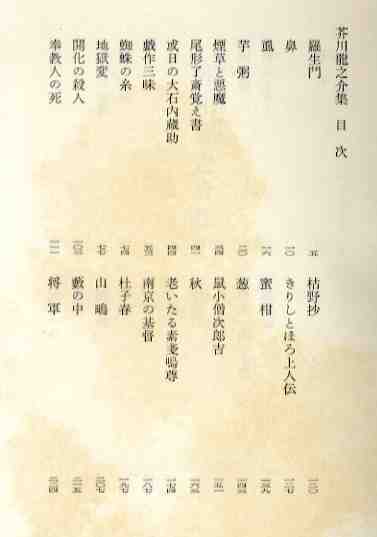 芥川龍之介集 目次
羅生門 五
鼻 一〇
虱 一六
芋粥 二〇
煙草と悪魔
尾形了斎覚え書 四一
或日の大石内蔵助
戯作三昧
蜘蛛の糸
地獄変
開化の殺人
奉教人の死 一一一
枯野抄 一二〇
きりしとほろ上人伝 一二七
蜜柑 一三九
葱
鼠小僧次郎吉 一五一
秋
老いたる素戔嗚尊 一七四
南京の基督 一八七
杜子春 一九七
山鴫 二〇七
藪の中 二一五
将軍